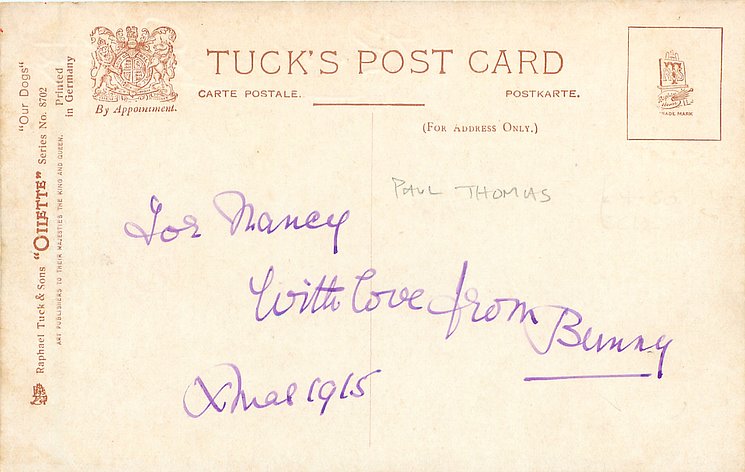 TUCK'S POST CARD
CARTE POSTALE. POSTKARTE.
By Appointment.
(FOR ADDRESS ONLY.)
TRADE MARK
PAUL THOMAS
For Nancy
With love from Bunny
Xmas 1915
"Our Dogs"
Raphael Tuck & Sons "OILETTE" Series No. 8702
ART PUBLISHERS TO THEIR MAJESTIES THE KING AND QUEEN.
Printed
in Germany